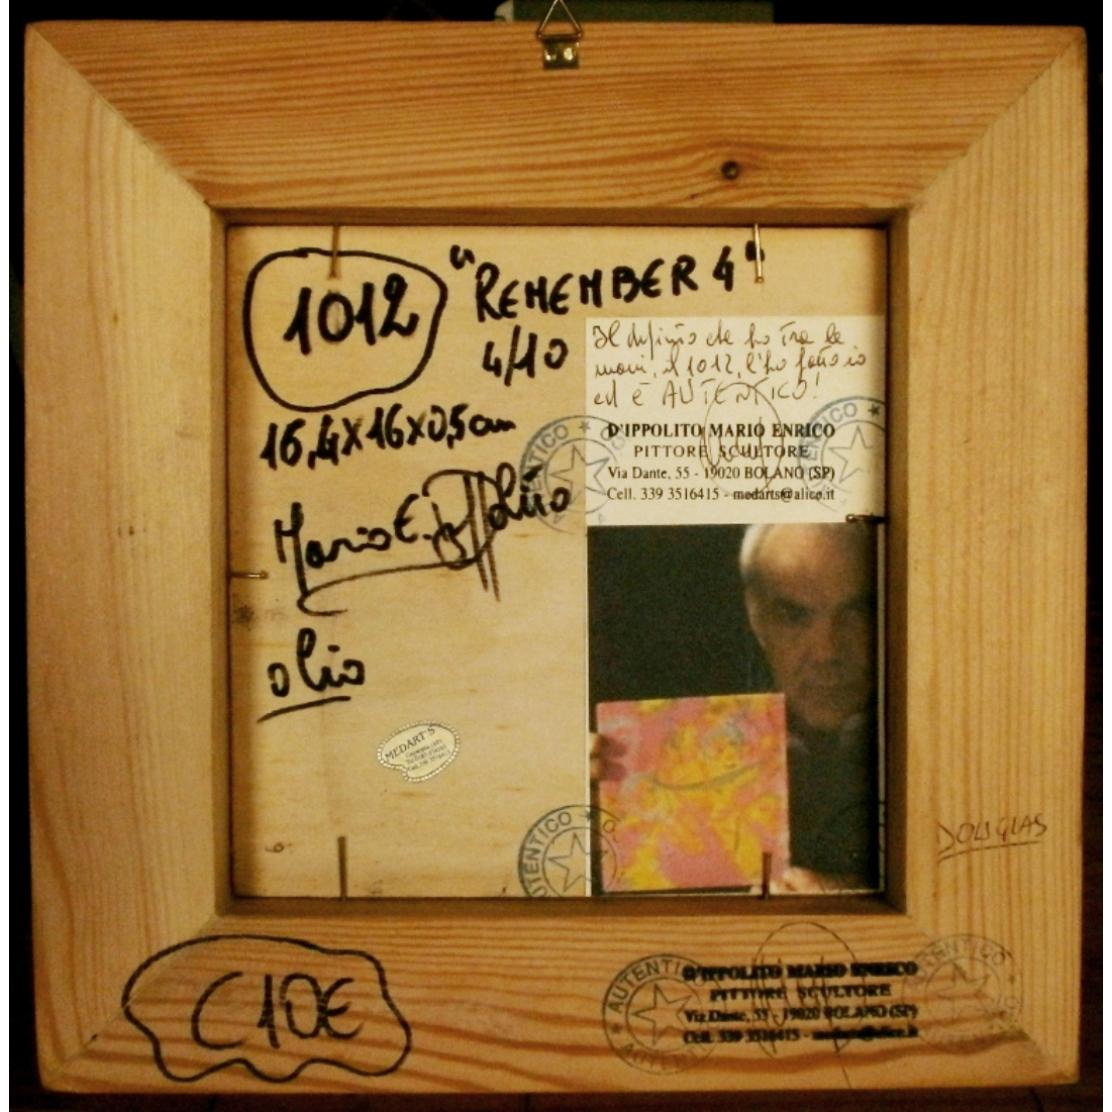 1012
"REMEMBER 4"
4/10
16,4X16X0,5cm
Mario E. D'Ippolito
olio
Il dipinto che ho tra le
mani, il 1012, l'ho fatto io
ed è AUTENTICO!
D'IPPOLITO MARIO ENRICO
PITTORE SCULTORE
Via Dante, 55 - 19020 BOLANO (SP)
Cell. 339 3516415 - medarts@alice.it
AUTENTICO
AUTENTICO
MEDART'S
AUTENTICO
DOUGLAS
C10€
AUTENTICO
D'IPPOLITO MARIO ENRICO
PITTORE SCULTORE
Via Dante, 55 - 19020 BOLANO (SP)
Cell. 339 3516415 - medarts@alice.it
AUTENTICO